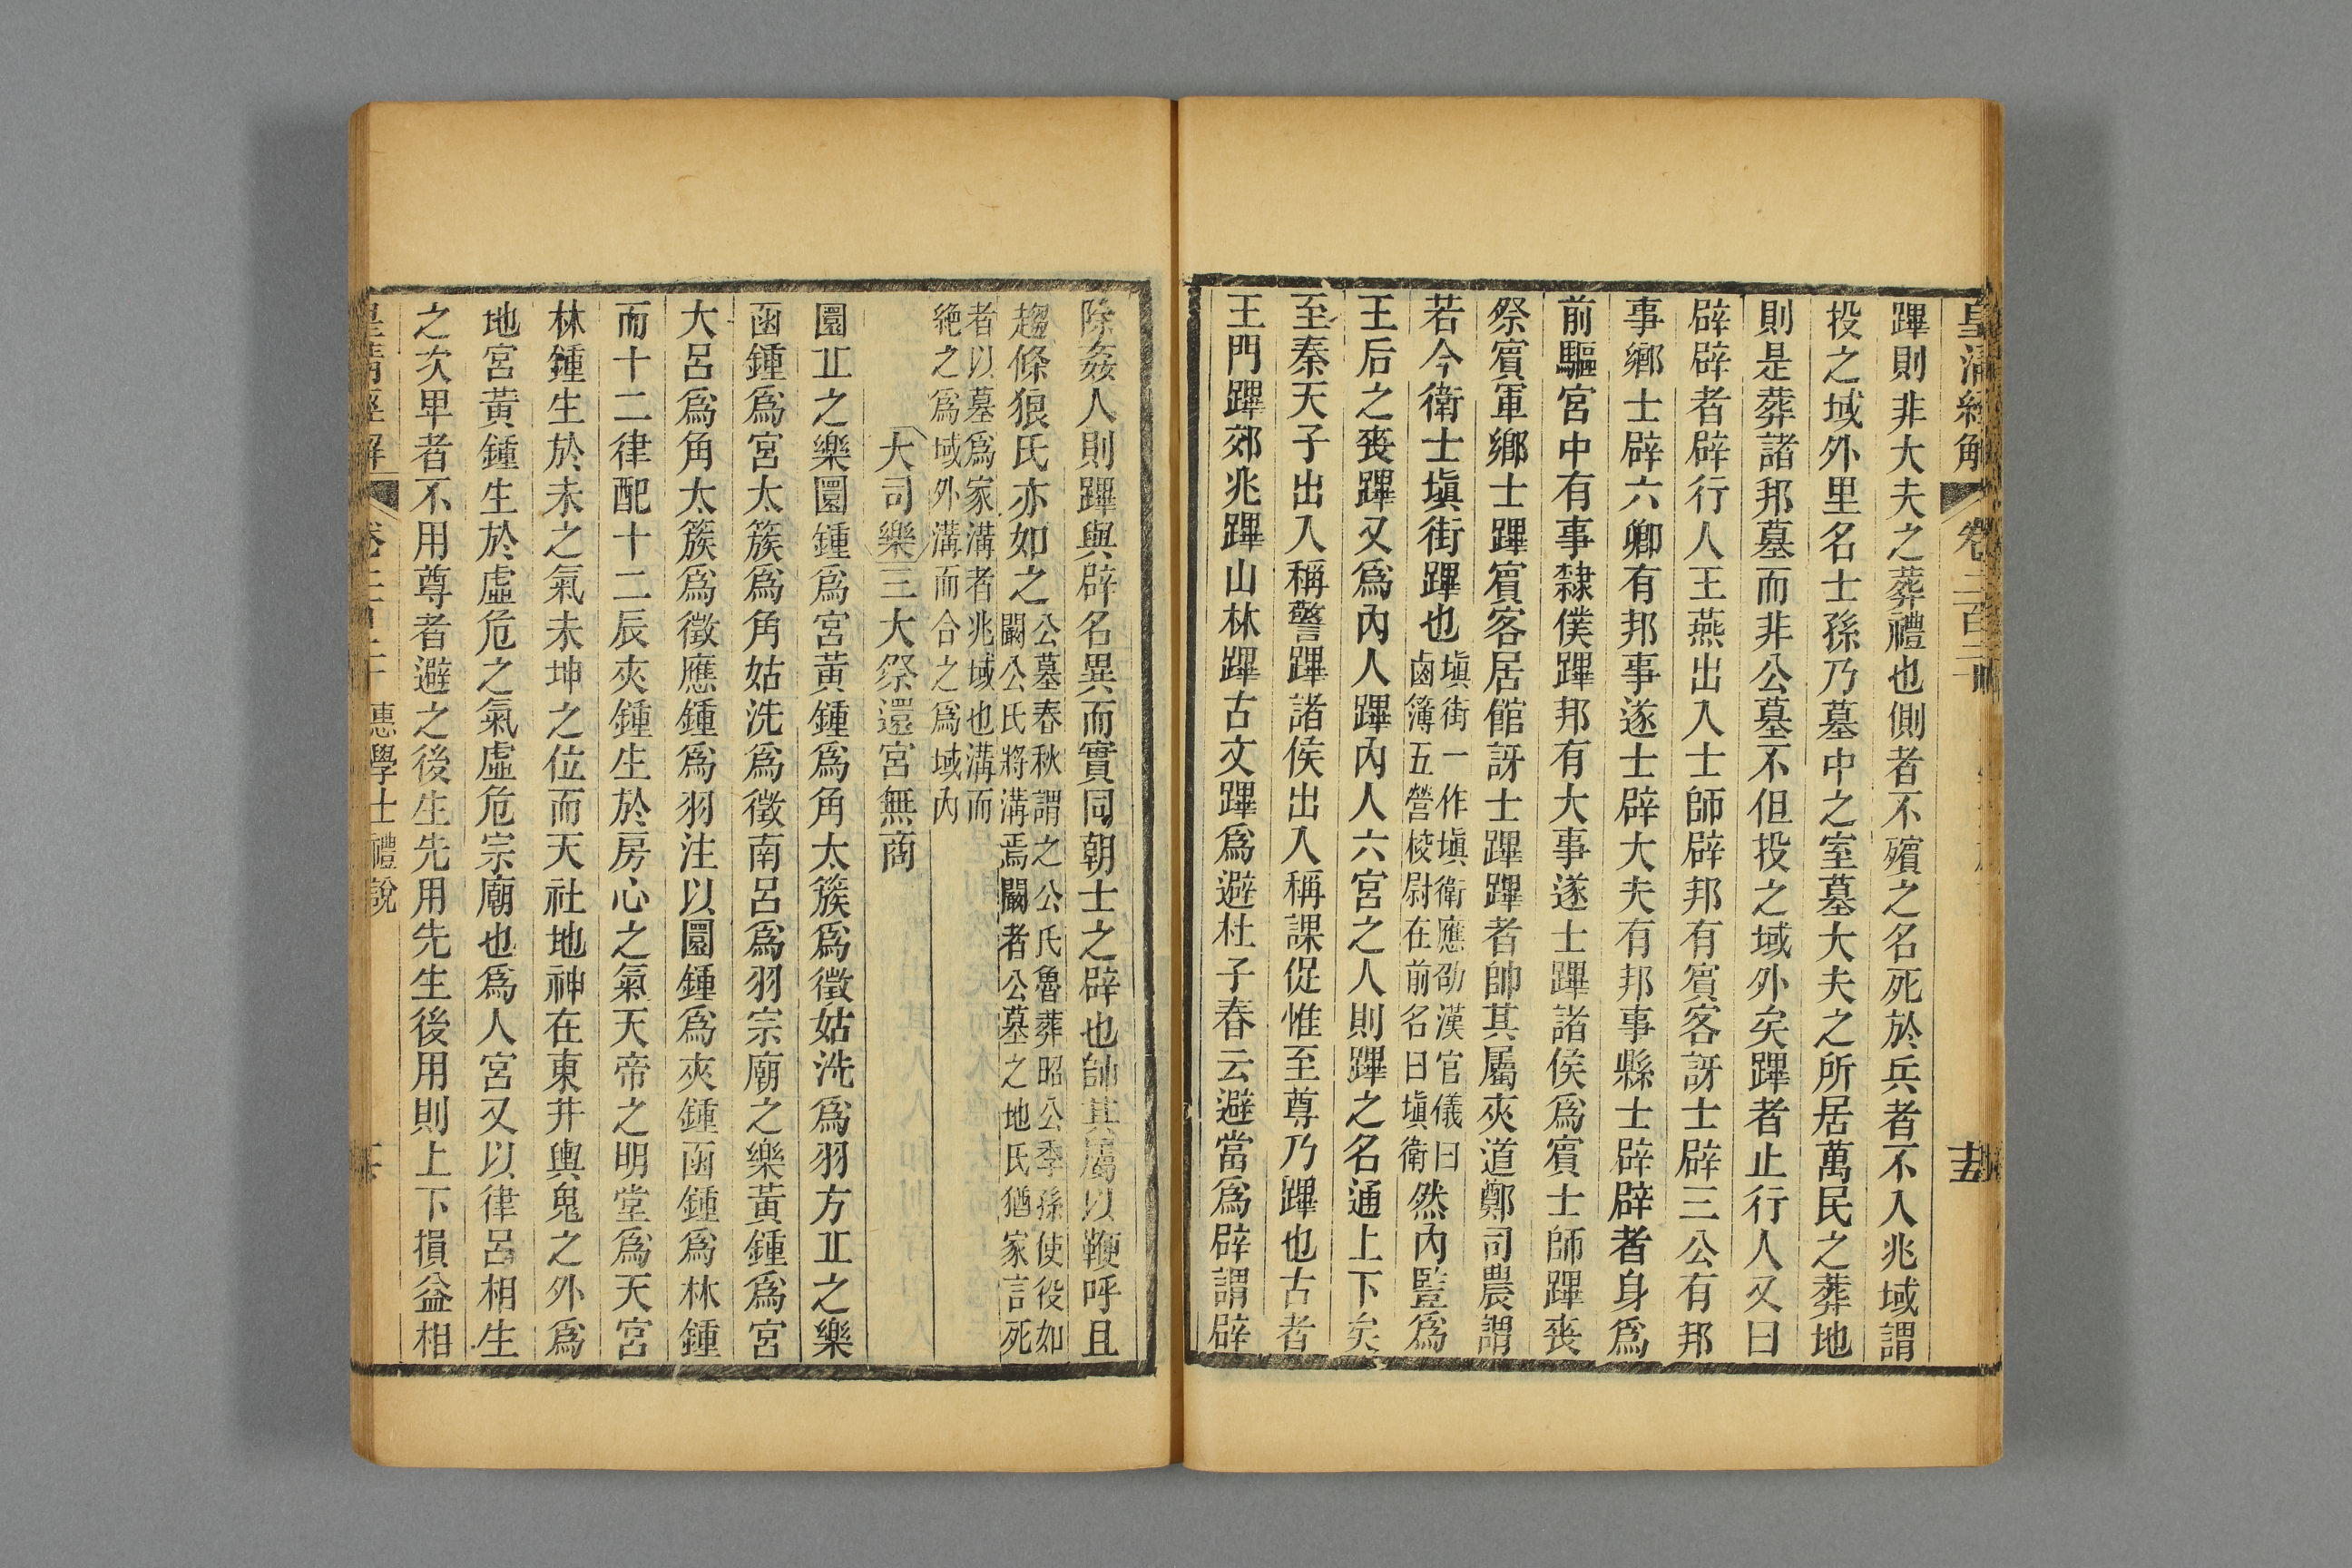 皇清經解 卷二百二十 十五
蹕則非大夫之葬禮也側者不殯之名死於兵者不入兆域謂
投之域外里名士孫乃墓中之室墓大夫之所居萬民之葬地
則是葬諸邦墓而非公墓不但投之域外矣蹕者止行人又曰
辟辟者辟行人王燕出入士師辟邦有賓客訝士辟三公有邦
事鄉士辟六卿有邦事遂士辟大夫有邦事縣士辟辟者身爲
前驅宮中有事隸僕蹕邦有大事遂士蹕諸侯爲賓士師蹕喪
祭賓軍鄉士蹕賓客居館訝士蹕蹕者帥其屬夾道鄭司農謂
若今衛士塡街蹕也塡街一作塡衛應劭漢官儀曰
鹵簿五營校尉在前名曰塡衛然內豎爲
王后之喪蹕又爲內人蹕內人六宮之人則蹕之名通上下矣
至秦天子出入稱警蹕諸侯出入稱課促惟至尊乃蹕也古者
王門蹕郊兆蹕山林蹕古文蹕爲避杜子春云避當爲辟謂辟
除姦人則蹕與辟名異而實同朝士之辟也帥其屬以鞭呼且
趨條狼氏亦如之公墓春秋謂之公氏魯葬昭公季孫使役如
闞公氏將溝焉闞者公墓之地氏猶家言死
者以墓爲家溝者兆域也溝而
絶之爲域外溝而合之爲域內
大司樂三大祭還宮無商
圜丘之樂圜鍾爲宮黃鍾爲角太簇爲徵姑洗爲羽方丘之樂
函鍾爲宮太簇爲角姑洗爲徵南呂爲羽宗廟之樂黃鍾爲宮
大呂爲角太簇爲徵應鍾爲羽注以圜鍾爲夾鍾函鍾爲林鍾
而十二律配十二辰夾鍾生於房心之氣天帝之明堂爲天宮
林鍾生於未之氣未坤之位而天社地神在東井輿鬼之外爲
地宮黃鍾生於虛危之氣虛危宗廟也爲人宮又以律呂相生
之次卑者不用尊者避之後生先用先生後用則上下損益相
皇清經解 卷二百二十 惠學士禮說